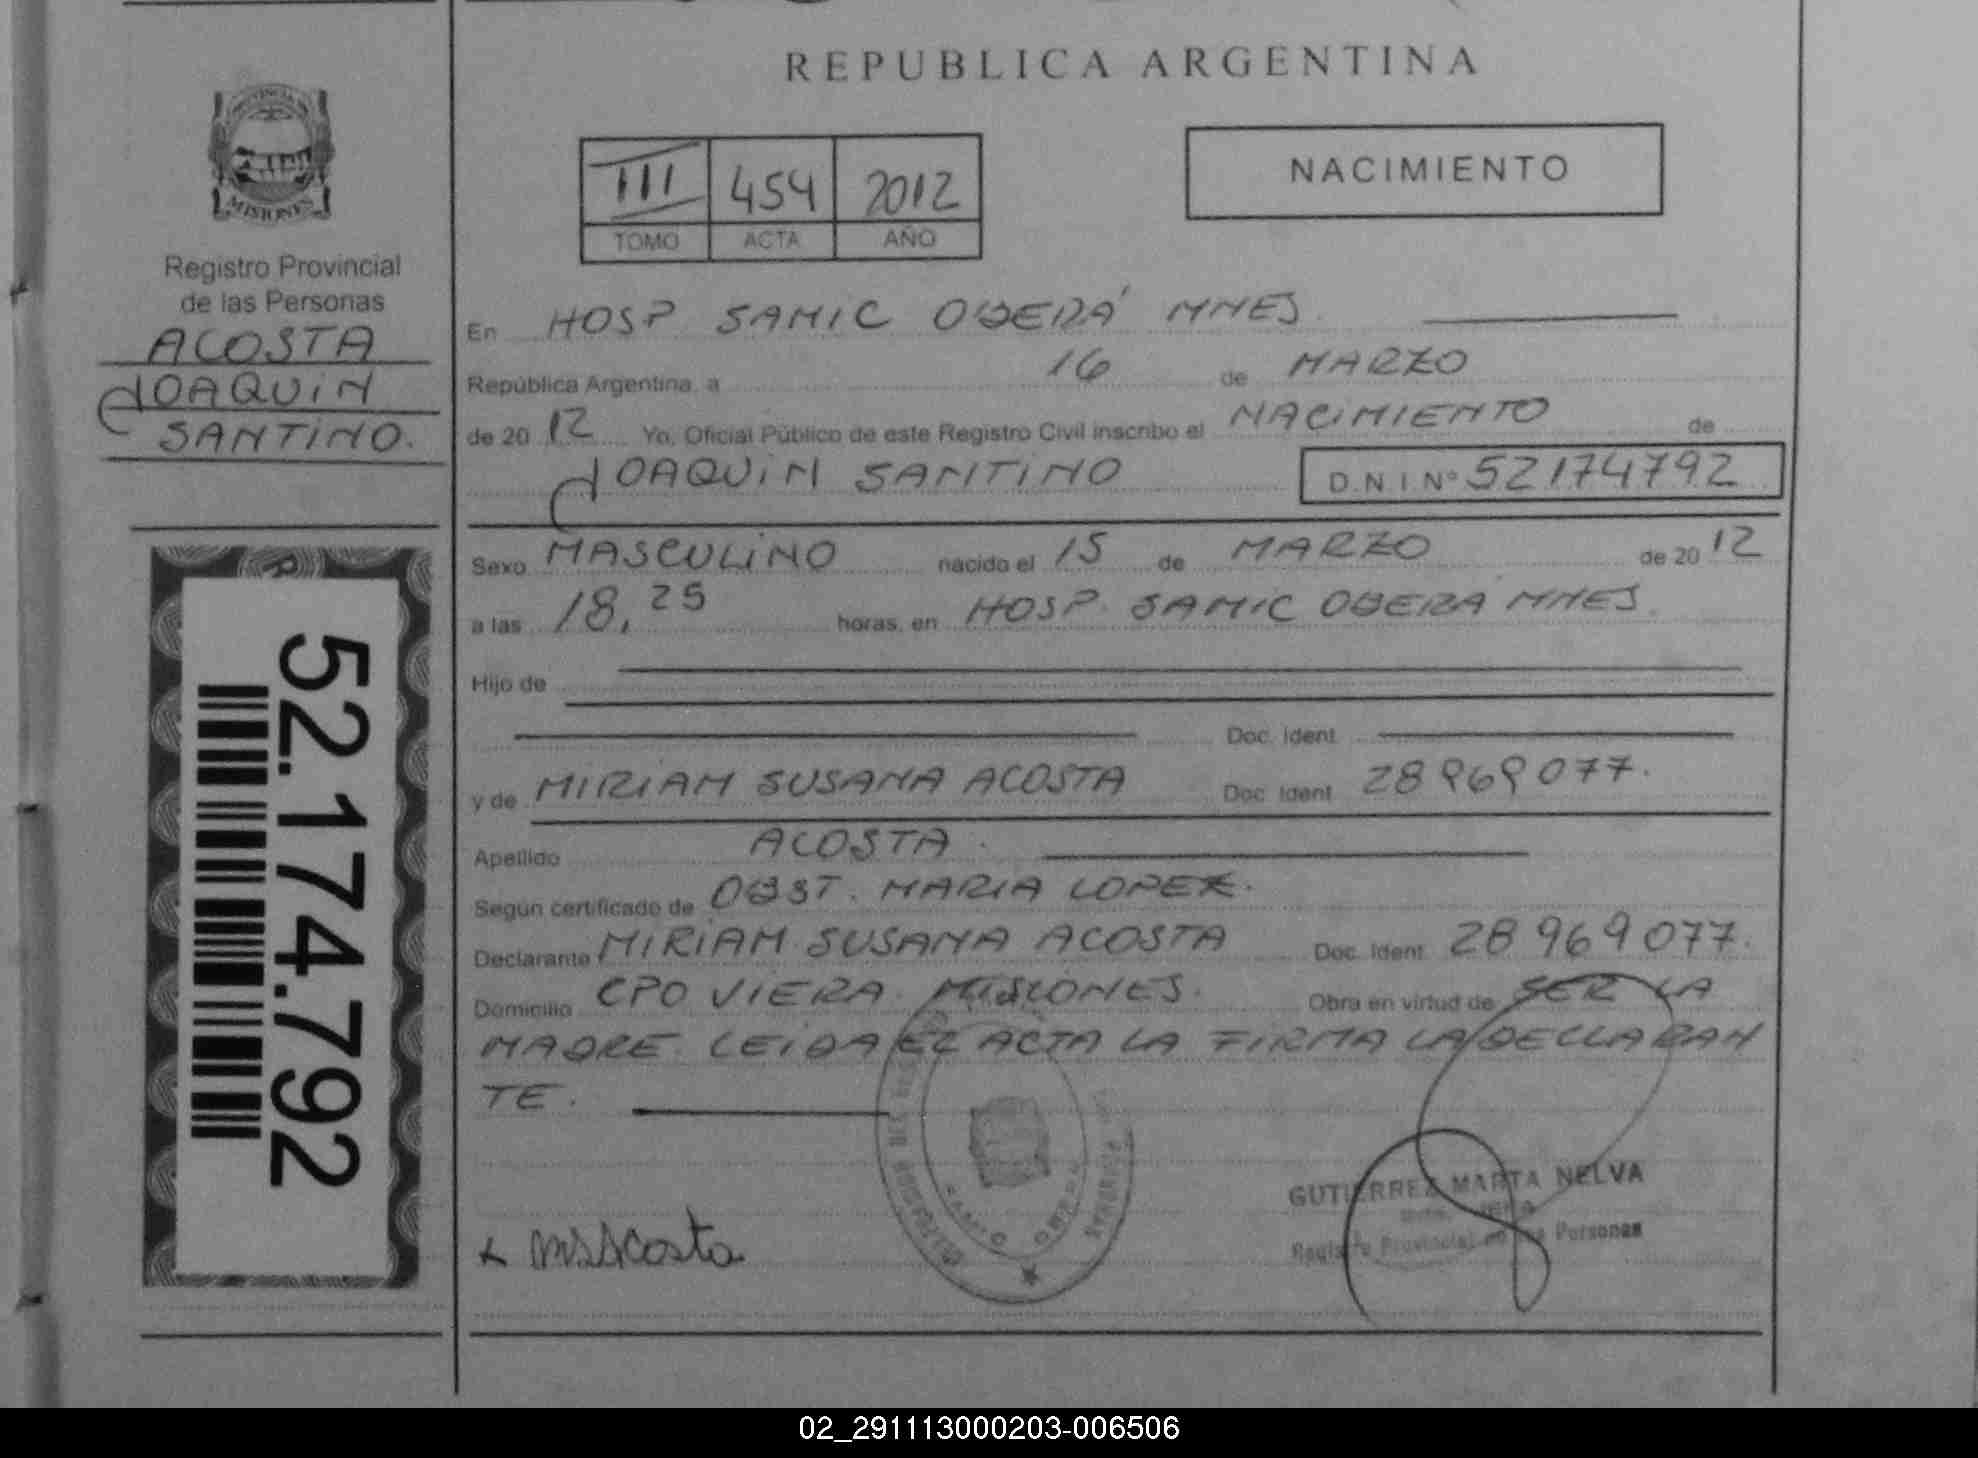 REPUBLICA ARGENTINA
PROVINCIA DE
MISIONES
Registro Provincial
de las Personas
ACOSTA
JOAQUIN
SANTINO.
52.174.792
III 454 2012
TOMO ACTA AÑO
NACIMIENTO
En HOSP SAMIC OBERÁ MNES.
República Argentina, a 16 de MARZO
de 20 12 Yo, Oficial Público de este Registro Civil inscribo el NACIMIENTO de
JOAQUIN SANTINO D.N.I Nº 52174792
Sexo MASCULINO nacido el 15 de MARZO de 20 12
a las 18,25 horas, en HOSP. SAMIC OBERA MNES.
Hijo de
Doc. Ident.
y de MIRIAM SUSANA ACOSTA Doc. Ident. 28969077.
Apellido ACOSTA.
Según certificado de OBST. MARIA LOPEZ.
Declarante MIRIAM SUSANA ACOSTA Doc. Ident. 28969077.
Domicilio CPO VIERA. MISIONES. Obra en virtud de SER LA
MADRE. LEIDA EL ACTA LA FIRMA LA DECLARAN
TE.
x MSAcosta
GUTIERREZ MARTA NELVA
Registro Provincial de las Personas
02_291113000203-006506